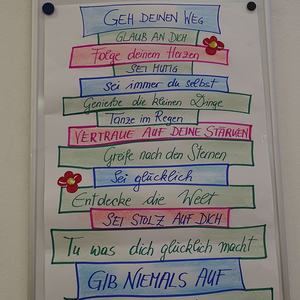 GEH DEINEN WEG
GLAUB AN DICH
Folge deinem Herzen
SEI MUTIG
Sei immer du selbst
Genieße die kleinen Dinge
Tanze im Regen
VERTRAUE AUF DEINE STÄRKEN
Greife nach den Sternen
Sei glücklich
Entdecke die Welt
SEI STOLZ AUF DICH
Tu was dich glücklich macht
GIB NIEMALS AUF